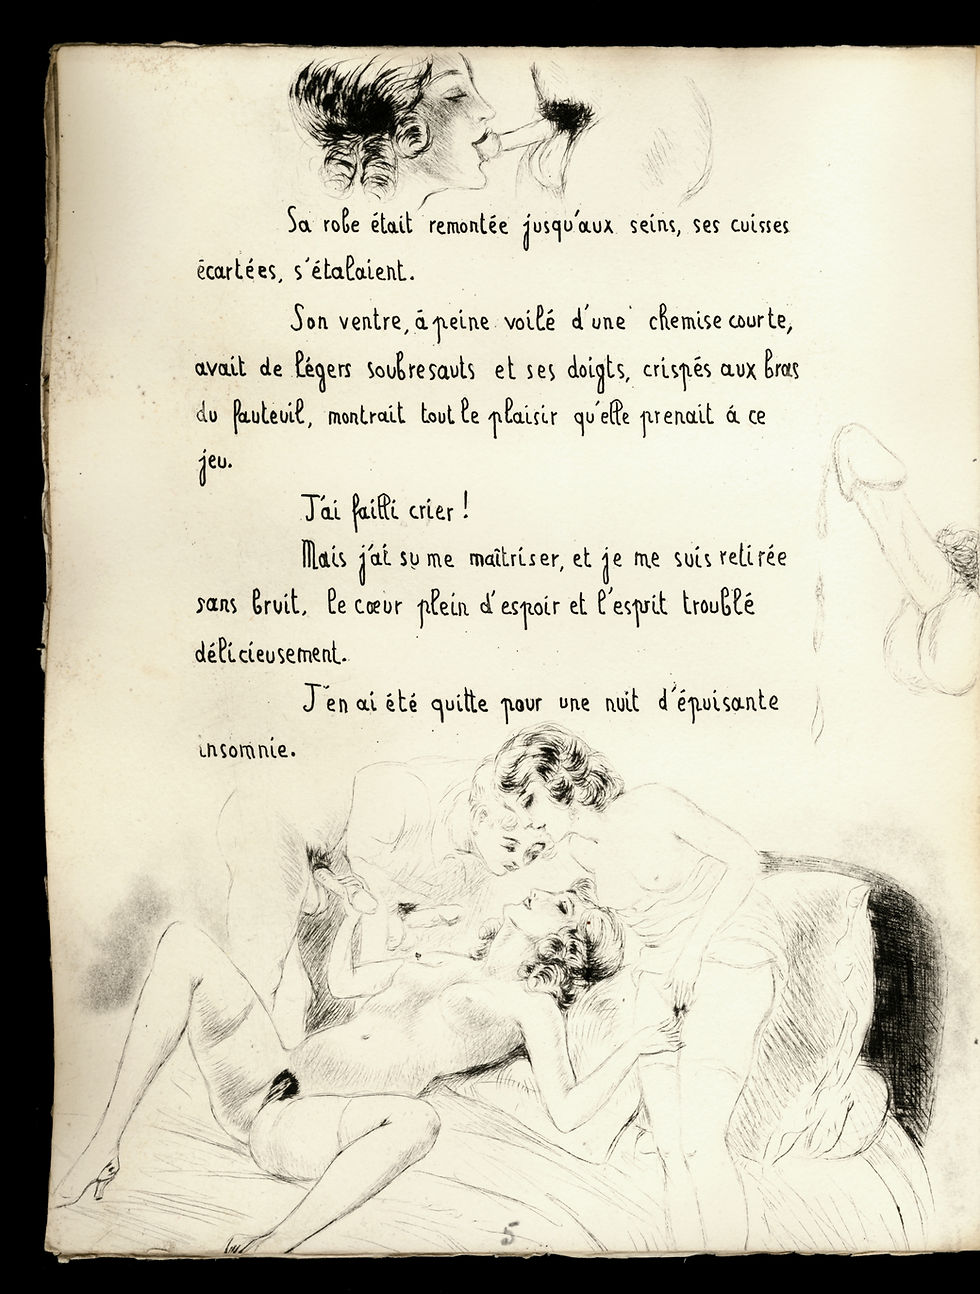 Sa robe était remontée jusqu'aux seins, ses cuisses
écartées, s'étalaient.
Son ventre, à peine voilé d'une chemise courte,
avait de légers soubresauts et ses doigts, crispés aux bras
du fauteuil, montrait tout le plaisir qu'elle prenait à ce
jeu.
J'ai failli crier !
Mais j'ai su me maîtriser, et je me suis retirée
sans bruit, le cœur plein d'espoir et l'esprit troublé
délicieusement.
J'en ai été quitte pour une nuit d'épuisante
insomnie.
5